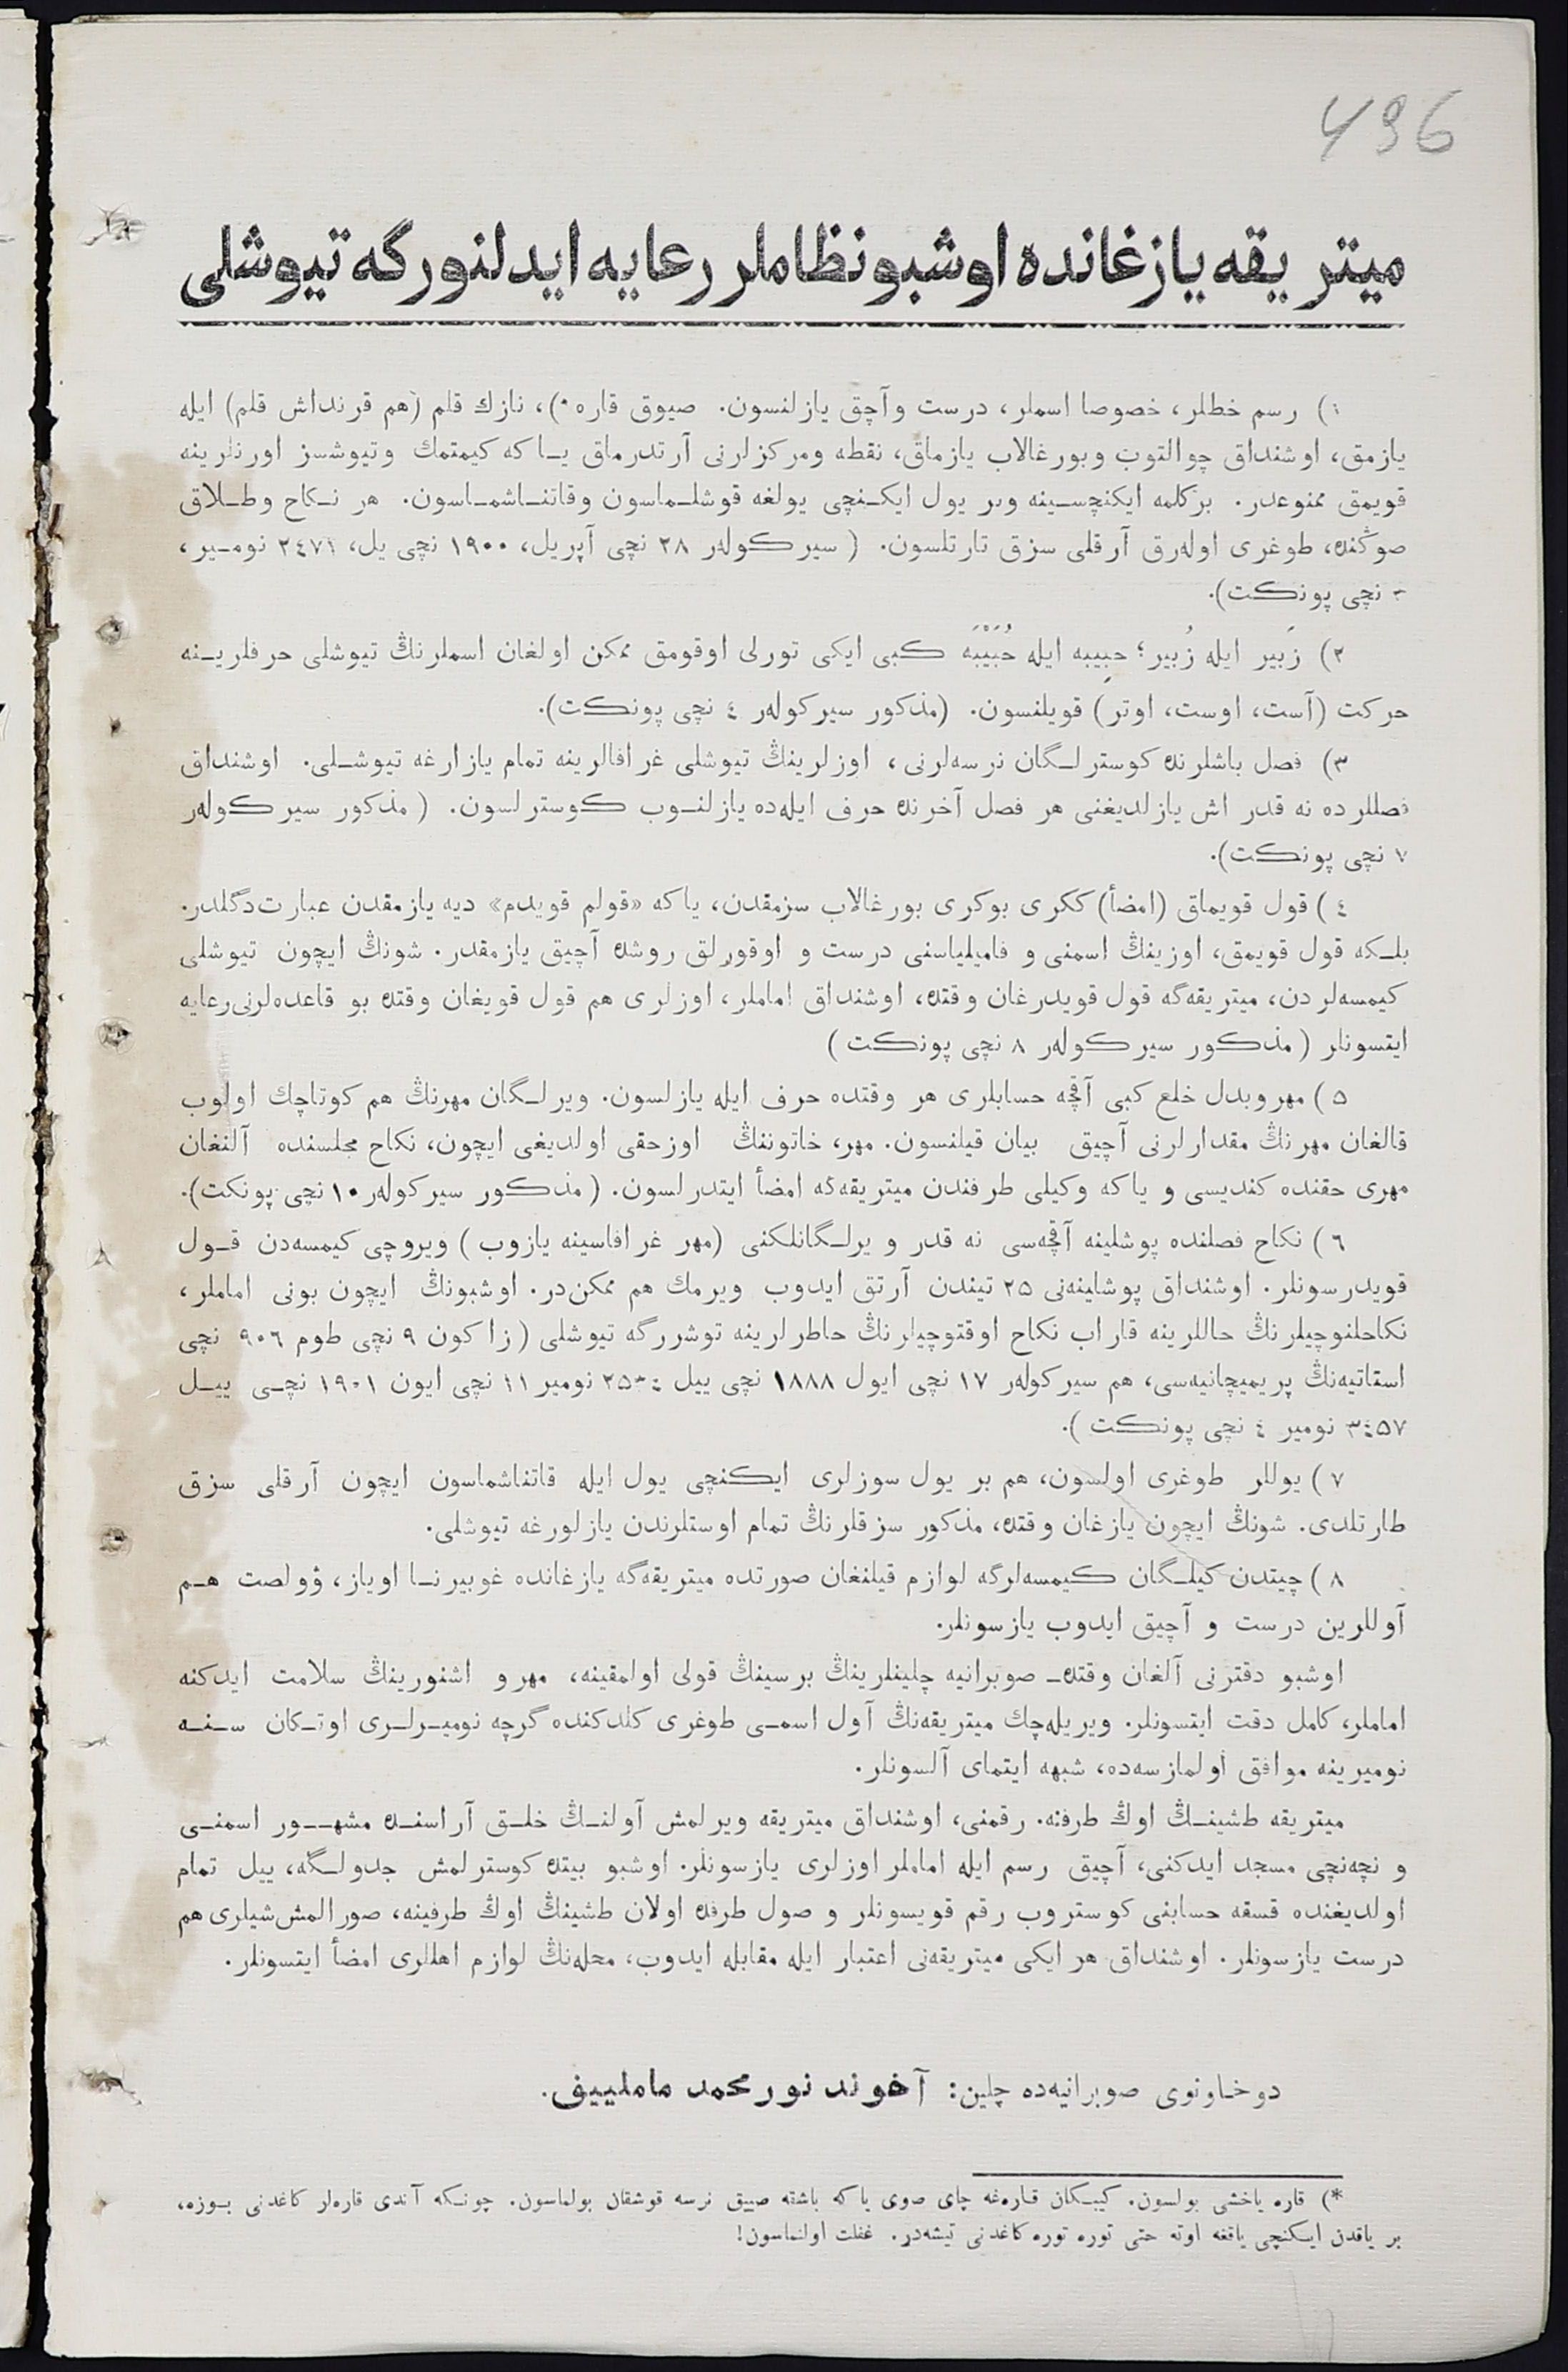 496
میتریقه یازغانده اوشبو نظاملر رعایه ایدلنورگه تیوشلی
۱) رسم خطلر، خصوصا اسملر، درست وآچق یازلنسون. صیوق قاره*)، نازك قلم (هم قرنداش قلم) ایله
یازمق، اوشنداق چوالتوب وبورغالاب یازماق، نقطه ومرکزلرنی آرتدرماق یـا که کیمتمك وتیوشسز اورنلرینه
قویمق ممنوعدر. برکلمه ایکنچسـینه وبر یول ایکـنچی یولغه قوشلـماسون وقاتنـاشمـاسون. هر نـکاح وطـلاق
صوڭنده، طوغری اوله‌رق آرقلی سزق تارتلسون. (سیرکوله‌ر ۲۸ نچی آپریل، ۱۹۰۰ نچی یل، ۲٤۷۱ نومـیر،
نچی پونکت).
۲) زَبیر ایله زُبیر؛ حبِیبه ایله حُبَیْبَه کبی ایکی تورلی اوقومق ممکن اولغان اسملرنڭ تیوشلی حرفلریـنه
حرکت (آست، اوست، اوتر) قویلنسون. (مذکور سیرکوله‌ر ٤ نچی پونکت).
۳) فصل باشلرنده کوسترلـگان نرسه‌لرنی، اوزلرینڭ تیوشلی غرافالرینه تمام یازارغه تیوشـلی. اوشنداق
فصللرده نه قدر اش یازلدیغنی هر فصل آخرنده حرف ایله‌ده یازلنـوب کوسترلسون. (مذکور سیرکوله‌ر
۷ نچی پونکت).
٤) قول قویماق (امضأ) ککری بوکری بورغالاب سزمقدن، یاکه «قولم قویدم» دیه یازمقدن عبارت‌دگلدر.
بلـکه قول قویمق، اوزینڭ اسمنی و فامیلیاسنی درست و اوقورلق روشده آچیق یازمقدر. شونڭ ایچون تیوشلی
کیمسه‌لردن، میتریقه‌گه قول قویدرغان وقتده، اوشنداق اماملر، اوزلری هم قول قویغان وقتده بو قاعده‌لرنی‌رعایه
ایتسونلر (مذکور سیرکوله‌ر ۸ نچی پونکت)
۵) مهروبدل خلع کبی آقچه حسابلری هر وقتده حرف ایله یازلسون. ویرلـگان مهرنڭ هم کوتاچك اولوب
قالغان مهرنڭ مقدارلرنی آچیق بیان قیلنسون. مهر، خاتوننڭ اوزحقی اولدیغی ایچون، نکاح مجلسنده آلنغان
مهری حقنده کندیسی و یاکه وکیلی طرفندن میتریقه‌گه امضأ ایتدرلسون. (مذکور سیرکوله‌ر ۱۰ نچی پونکت).
٦) نکاح فصلنده پوشلینه آقچه‌سی نه قدر ویرلـگانلکنی (مهر غرافاسینه یازوب) ویروچی کیمسه‌دن قـول
قویدرسونلر. اوشنداق پوشلینه‌نی ۲۵ تیندن آرتق ایدوب ویرمك هم ممکن‌در. اوشبونڭ ایچون بونی اماملر،
نکاحلنوچیلرنڭ حاللرینه قاراب نکاح اوقتوچیلرنڭ خاطرلرینه توشررگه تیوشلی (زاکون ۹ نچی طوم ۹۰٦ نچی
استاتیه‌نڭ پریمیچانیه‌سی، هم سیرکوله‌ر ۱۷ نچی ایول ۱۸۸۸ نچی ییل نومیر ۱۱ نچی ایون ۱۹۰۱ نچـی ییـل
۳٤۵۷ نومیر ٤ نچی پونکت).
۷) یوللر طوغری اولسون، هم بر یول سوزلری ایکنچی یول ایله قاتناشماسون ایچون آرقلی سزق
طارتلدی. شونڭ ایچون یازغان وقتده، مذکور سزقلرنڭ تمام اوستلرندن یازلورغه تیوشلی.
۸) چیتدن کیلـگان کیمسه‌لرگه لوازم قیلنغان صورتده میتریقه‌گه یازغانده غوبیرنـا اویاز، ۋولصت هـم
آوللرین درست و آچیق ایدوب یازسونلر.
اوشبو دفترنی آلغان وقتده صوبرانیه چلینلرینڭ برسینڭ قولی اولمقینه، مهرو اشنورینڭ سلامت ایدکنه
اماملر، کامل دقت ایتسونلر. ویریله‌چك میتریقه‌نڭ آول اسمـی طوغری کلدکنده گرچه نومیـرلـری اوتـکان سـنـه
نومیرینه موافق اولمازسه‌ده، شبهه ایتمای آلسونلر.
میتریقه طشینـڭ اوڭ طرفنه. رقمنی، اوشنداق میتریقه ویرلمش آولنـڭ خلـق آراسنـده مشهـور اسمنـی
و نچه‌نچی مسجد ایدکنی، آچیق رسم ایله اماملر اوزلری یازسونلر. اوشبو بیتده کوسترلمش جدولـگه، ییل تمام
اولدیغنده قسقه حسابنی کوستروب رقم قویسونلر و صول طرفده اولان طشینڭ اوڭ طرفینه، صورالمش‌شیلری هم
درست یازسونلر. اوشنداق هر ایکی میتریقه‌نی اعتبار ایله مقابله ایدوب، محله‌نڭ لوازم اهللری امضأ ایتسونلر.
دوخاونوی صوبرانیه‌ده چلین: آخوند نورمحمد ماملییف.
*) قاره یاخشی بولسون. کیبـکان قاره‌غه چای صوی یاکه باشقه صییق نرسه قوشقان بولماسون. چونـکه آندی قاره‌لر کاغدنی بـوزه،
بر یاقدن ایـکنچی یاققه اوته حتی توره توره کاغدنی تیشه‌در. غفلت اولنماسون!